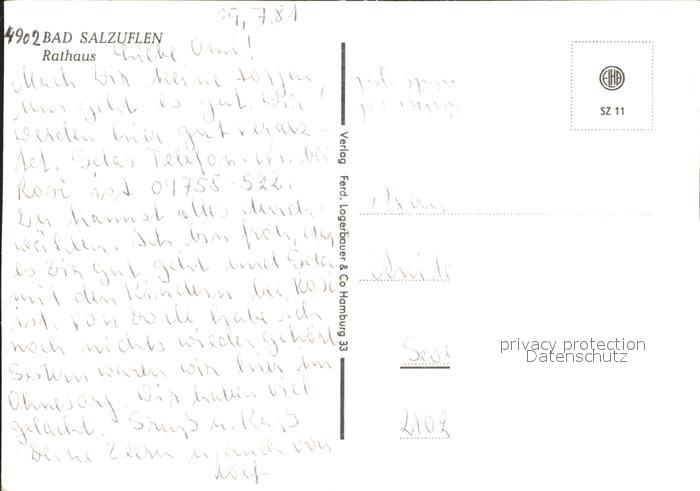 29.7.81
4902 BAD SALZUFLEN
Rathaus
Liebe Omi!
Mach Dir keine Sorgen,
uns geht es gut. Wir
werden hier gut verarz-
tet. Telefon-Nr. bei
Rosi ist 04755-522.
Du kannst alles durch-
wählen. Ich bin froh, daß
es Dir gut geht und
mit den Kindern bei Rosi
ist. Von habe ich
noch nichts wieder gehört
Gestern waren wir hier im
Ohnesorg Wir haben viel
gelacht. Gruß u. Kuß
Deine u. auch von
Verlag Ferd. Lagerbauer & Co Hamburg 33
EHB
SZ 11
Frau
2102
privacy protection
Datenschutz